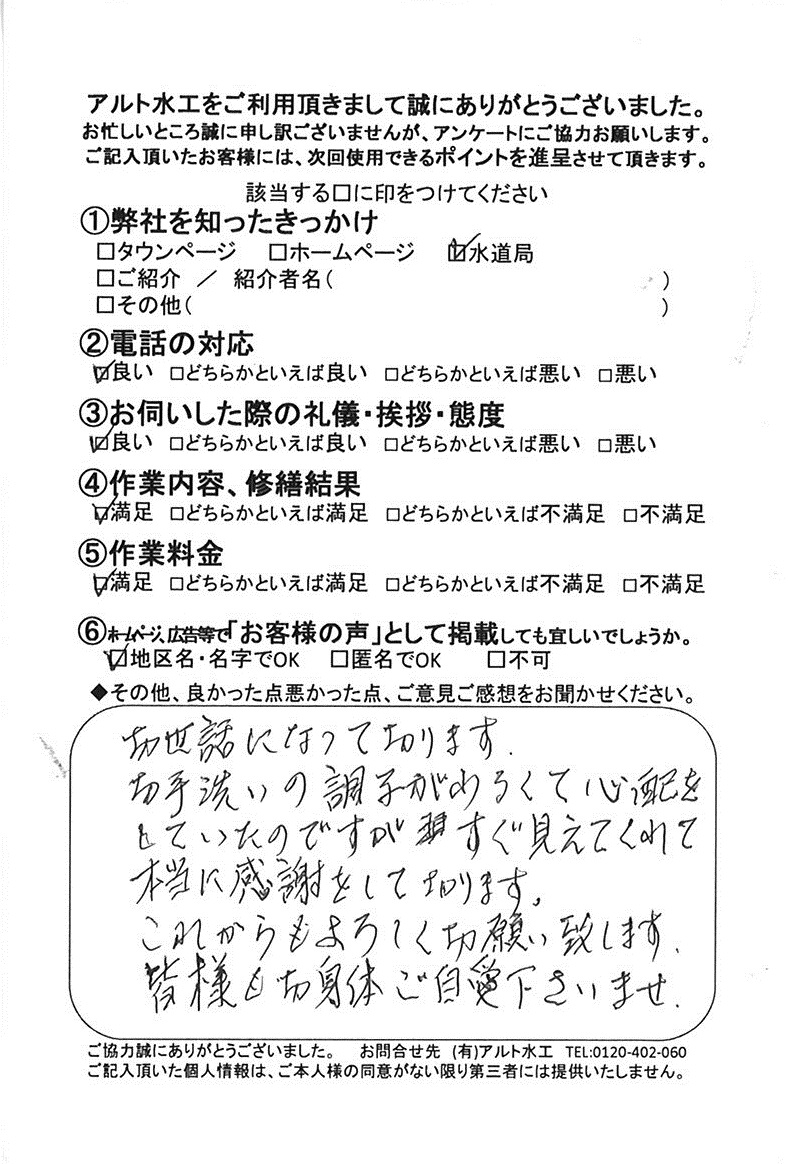 アルト水工をご利用頂きまして誠にありがとうございました。
お忙しいところ誠に申し訳ございませんが、アンケートにご協力お願いします。
ご記入頂いたお客様には、次回使用できるポイントを進呈させて頂きます。
該当する□に印をつけてください
①弊社を知ったきっかけ
□タウンページ □ホームページ ☑水道局
□ご紹介 ／ 紹介者名( )
□その他( )
②電話の対応
☑良い □どちらかといえば良い □どちらかといえば悪い □悪い
③お伺いした際の礼儀・挨拶・態度
☑良い □どちらかといえば良い □どちらかといえば悪い □悪い
④作業内容、修繕結果
☑満足 □どちらかといえば満足 □どちらかといえば不満足 □不満足
⑤作業料金
☑満足 □どちらかといえば満足 □どちらかといえば不満足 □不満足
⑥ホームページ、広告等で「お客様の声」として掲載しても宜しいでしょうか。
☑地区名・名字でOK □匿名でOK □不可
◆その他、良かった点悪かった点、ご意見ご感想をお聞かせください。
お世話になって おります.
お手洗いの調子がわるくて心配を
していたのですが すぐ見えてくれて
本当に感謝をしております。
これからもよろしくお願い致します.
皆様もお身体ご自愛下さいませ.
ご協力誠にありがとうございました。 お問合せ先 (有)アルト水工 TEL:0120-402-060
ご記入頂いた個人情報は、ご本人様の同意がない限り第三者には提供いたしません。